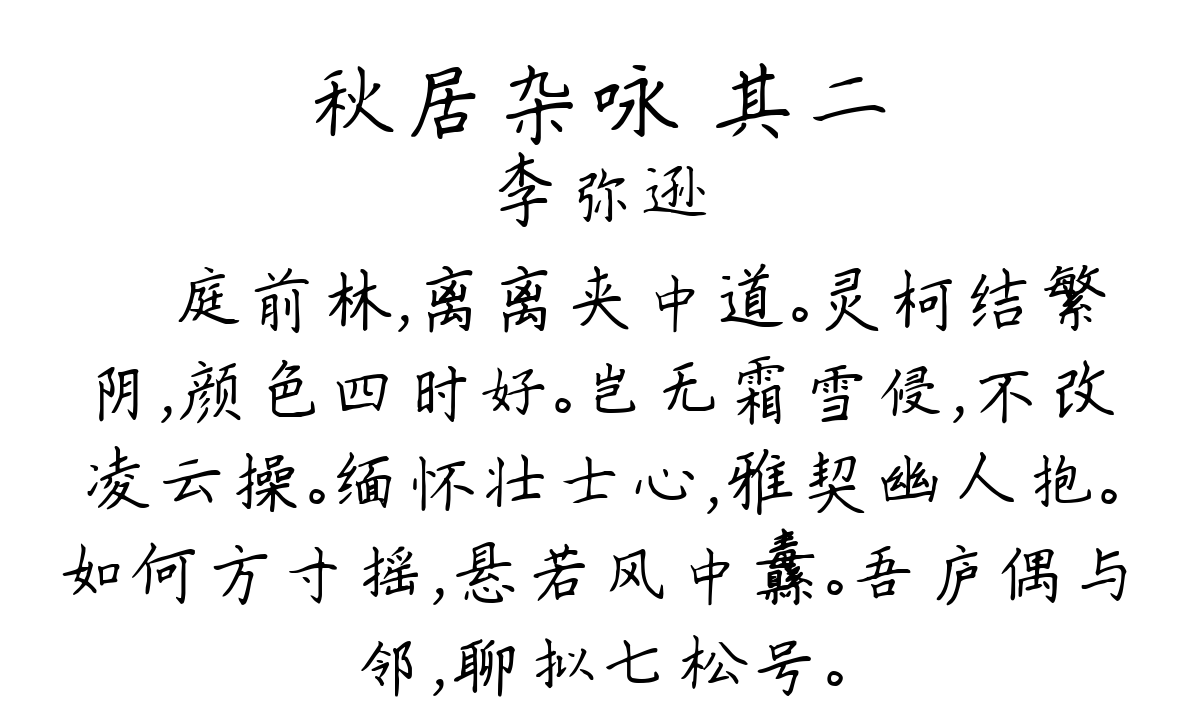 秋居杂咏 其二
李弥逊
庭前林,离离夹中道。灵柯结繁
阴,颜色四时好。岂无霜雪侵,不改
凌云操。缅怀壮士心,雅契幽人抱。
如何方寸摇,悬若风中纛。吾庐偶与
邻,聊拟七松号。